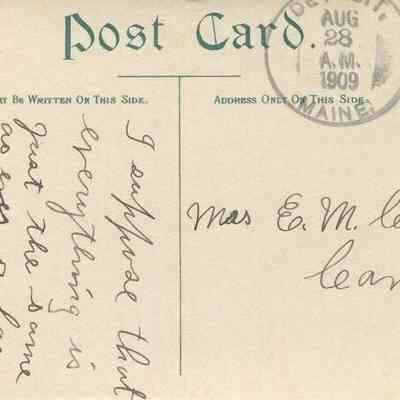 Post Card.
DETROIT,
AUG
28
A.M.
1909
MAINE.
AY BE WRITTEN ON THIS SIDE.
ADDRESS ONLY ON THIS SIDE.
I suppose that
everything is
just the same
as ever
Mrs E. M.